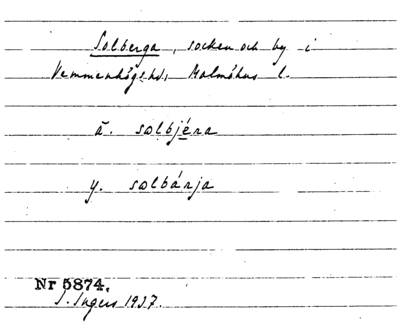 Solberga, socken och by i
Vemmenhögs hd, Malmöhus l.
ä. solbjéra
y. solbárja
Nr 5874.
I. Ingers 1937.